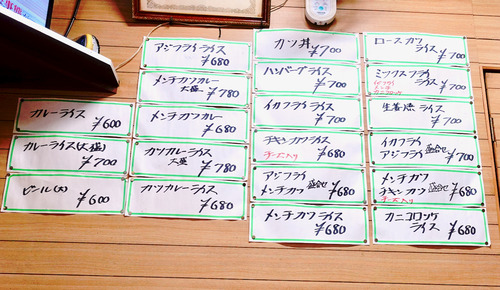 カツ丼
¥700
ロースカツ
ライス
¥700
アジフライライス
¥680
ハンバーグライス
¥700
ミックスフライ
ライス
¥700
メンチカツカレー
大盛
¥780
イカフライライス
¥700
生姜焼ライス
¥700
カレーライス
¥600
メンチカツカレー
¥680
チキンカツライス
チーズ入り
¥680
イカフライ
アジフライ 盛合せ
¥700
カレーライス(大盛)
¥700
カツカレーライス
大盛
¥780
アジフライ
メンチカツ 盛合せ
¥680
メンチカツ
チキンカツ 盛合せ
チーズ入り
¥680
ビール(大)
¥600
カツカレーライス
¥680
メンチカツライス
¥680
カニコロッケ
ライス
¥680